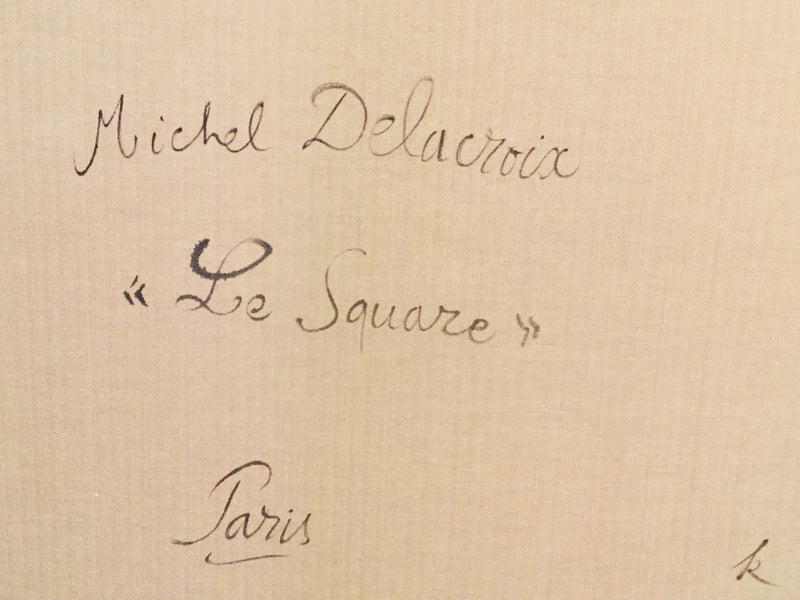 Michel Delacroix
« Le Square »
Paris
k